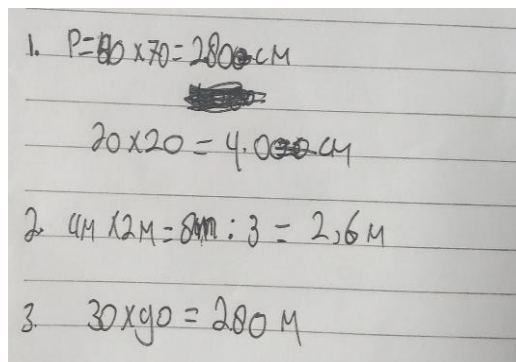 1. P=80 x 70 = 2800 CM
20 x 20 = 4.000 CM
2. 4M x 2M = 8m : 3 = 2,6 M
3. 30 x 90 = 280 M